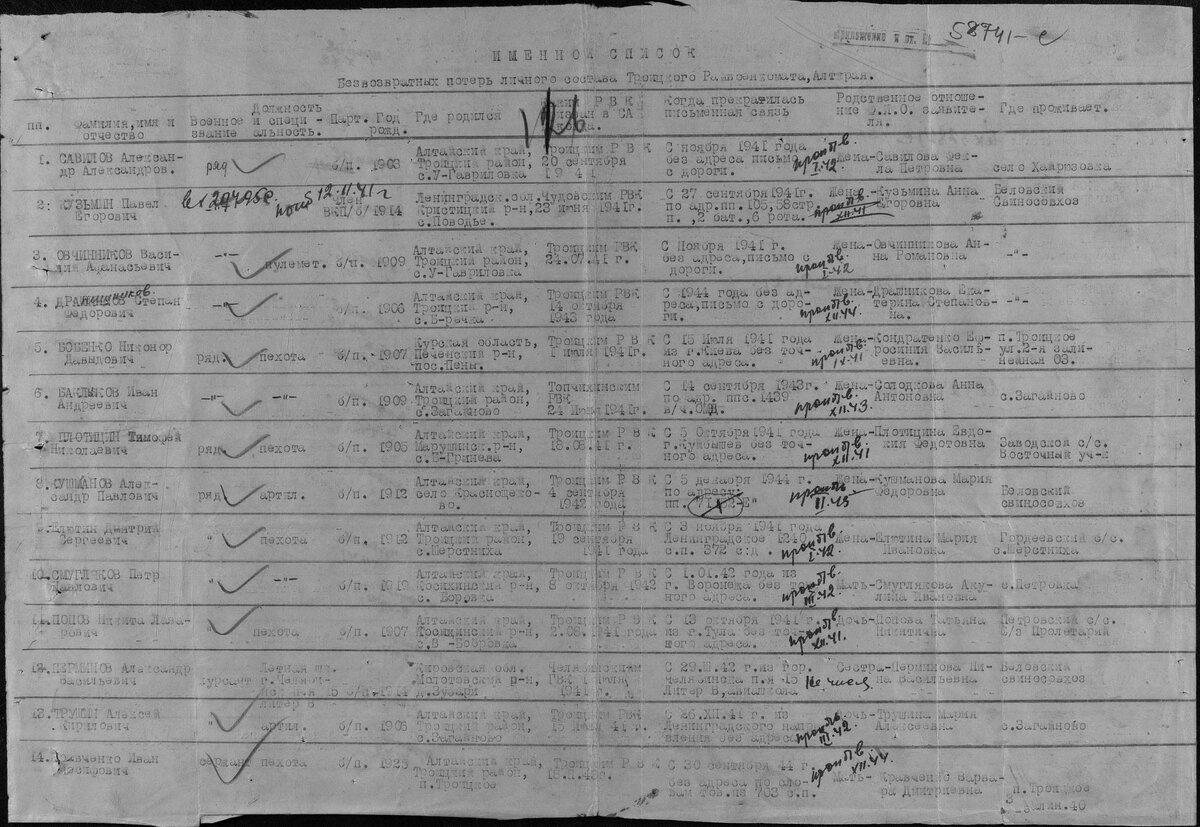 58741-с
ИМЕННОЙ СПИСОК
Безвозвратных потерь личного состава Троицкого Райвоенкомата, Алткрая.
пп. Фамилия, имя и отчество Военное звание Должность и специальность. Парт. Год рожд. Где родился РВК призван в СА Когда прекратилась письменная связь Родственное отношение Ф.И.О. заявителя. Где проживает.
1. САВИЛОВ Александр Александров. ряд б/п. 1903 Алтайский край, Троицкий район, с.У-Гавриловка Троицким РВК 20 сентября 1941 С ноября 1941 года без адреса письмо с дороги. проп.в. I.42 Жена-Савилова Фекла Петровна село Хайрюзовка
2. КУЗЬМИН Павел Егорович погиб 12.11.41 г член ВКП/б/ 1914 Ленинградск.обл. Кристицкий р-н, с.Поводье. Чудовским РВК 23 июня 1941г. С 27 сентября 1941г. по адр.пп.105, 58стр. п., 2 бат., 6 рота. проп.в. XII.41 Жена-Кузьмина Анна Егоровна Беловский Свиносовхоз
3. ОВЧИННИКОВ Василий Афанасьевич -"- пулемет. б/п. 1909 Алтайский край, Троицкий район, с.У-Гавриловка Троицким РВК 24.07.41 г. С Ноября 1941 г. без адреса, письмо с дороги. проп.в. I.42 Жена-Овчинникова Анна Романовна -"-
4. ДРАНИШНИКОВ Степан Федорович -"- б/п. 1906 Алтайский край, Троицкий р-н, с.Б-речка Троицким РВК 14 октября 1943 года С 1944 года без адреса, письмо с дороги. проп.в. XII.44 Жена-Драшникова Екатерина Степановна. -"-
5. БОБЕНКО Никонор Давыдович ряд. пехота б/п. 1907 Курская область, Печенский р-н, пос.Пены. Троицким РВК 1 июля 1941г. С 15 Июля 1941 года из г.Киева без точного адреса. проп.в. IX.41 Жена-Кондратенко Ефросиния Васильевна. п.Троицкое ул.2-я залинейная 03.
6. БАКЛЫКОВ Иван Андреевич -"- -"- б/п. 1909 Алтайский край, Троицкий район, с.Загайново Топчихинским РВК 24 Июня 1941г. С 14 сентября 1943г. по адр. ппс.1439 в/ч.ОМД. проп.в. XII.43 Жена-Солодкова Анна Антоновна с.Загайново
7. ПЛОТИЦИН Тимофей Николаевич ряд. пехота б/п. 1905 Алтайский край, Марушинск.р-н, с.Б-Гринева Троицким РВК 18.08.41 г. С 5 Октября 1941 года г.Куйбышев без точного адреса. проп.в. XII.41 Жена-Плотицина Евдокия Федотовна Заводской с/с. Восточный уч-к
8. КУШМАНОВ Александр Павлович ряд. артил. б/п. 1912 Алтайский край, село Краснощеково. Троицким РВК 4 сентября 1942 года С 5 декабря 1944 г. по адресу: пп. проп.в. III.45 Жена-Кушманова Мария Федоровна Беловский свиносовхоз
9. ШЛЮТИН Дмитрий Сергеевич " пехота б/п. 1912 Алтайский край, Троицкий район, с.Шерстниха Троицким РВК 19 сентября 1941 года С 3 ноября 1941 года Ленинградское 1240 с.п. 372 с.д. проп.в. I.42 Жена-Шлютина Мария Ивановна Гордеевский с/с. с.Шерстниха
10. СМУГЛЯКОВ Петр Павлович " -"- б/п. 1919 Алтайский край, Косихинский р-н, с. Боровка Троицким РВК 8 октября 1942 С 1.01.42 года из г. Воронежа без точного адреса. проп.в. III.42 Мать-Смуглякова Акулина Ивановна с.Петровка
11. ПОПОВ Никита Лазарович " пехота б/п. 1907 Алтайский край, Косихинский р-н, с.В-Бобровка Троицким РВК 2.08.1941 года С 13 октября 1941 г. из г.Тула без точного адреса. проп.в. XII.41. Дочь-Попова Татьяна Никитична Петровский с/с. С/з Пролетарий
12. ПЕРМИНОВ Александр Васильевич курсант Летная шк. г.Челябинск п/я 15 литер В б/п. 1914 Кировская обл. Молотовский р-н, д.Зубари Челябинским ГВК 1941г. С 29.III.42 г.из гор. Челябинска п.я -15 Литер В, авиашкола. не числ. Сестра-Перминова Нина Васильевна Беловский свиносовхоз
13. ТРУШИН Алексей Кирилович " артил. б/п. 1906 Алтайский край, Троицкий район, с.Загайново Троицким РВК 15 Июля 41 г. С 26.XII.41 г. из Ленинградского направления без адреса проп.в. III.42 Дочь-Трушина Мария Алексеевна с.Загайново
14. Кравченко Иван Иосифович сержант пехота б/п. 1925 Алтайский край, Троицкий район, п.Троицкое Троицким РВК 18.II.43г. С 30 сентября 44 г. без адреса по словам тов.из 763 с.п. проп.в. XII.44 Мать-Кравченко Варвара Дмитриевна п.Троицкое 3 залин.40